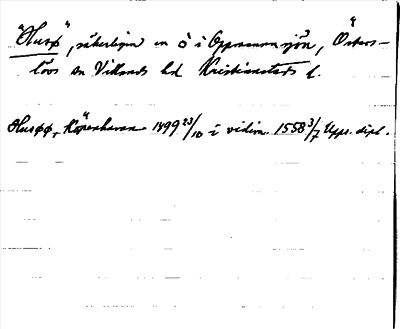 "Husø", säkerligen en ö i Oppmannasjön, Östers-
lövs sn Villands hd Kristianstads l.
Husøø, Köpenhamn 1499 23/10 i vidim. 1558 3/7 Upps. dipl.